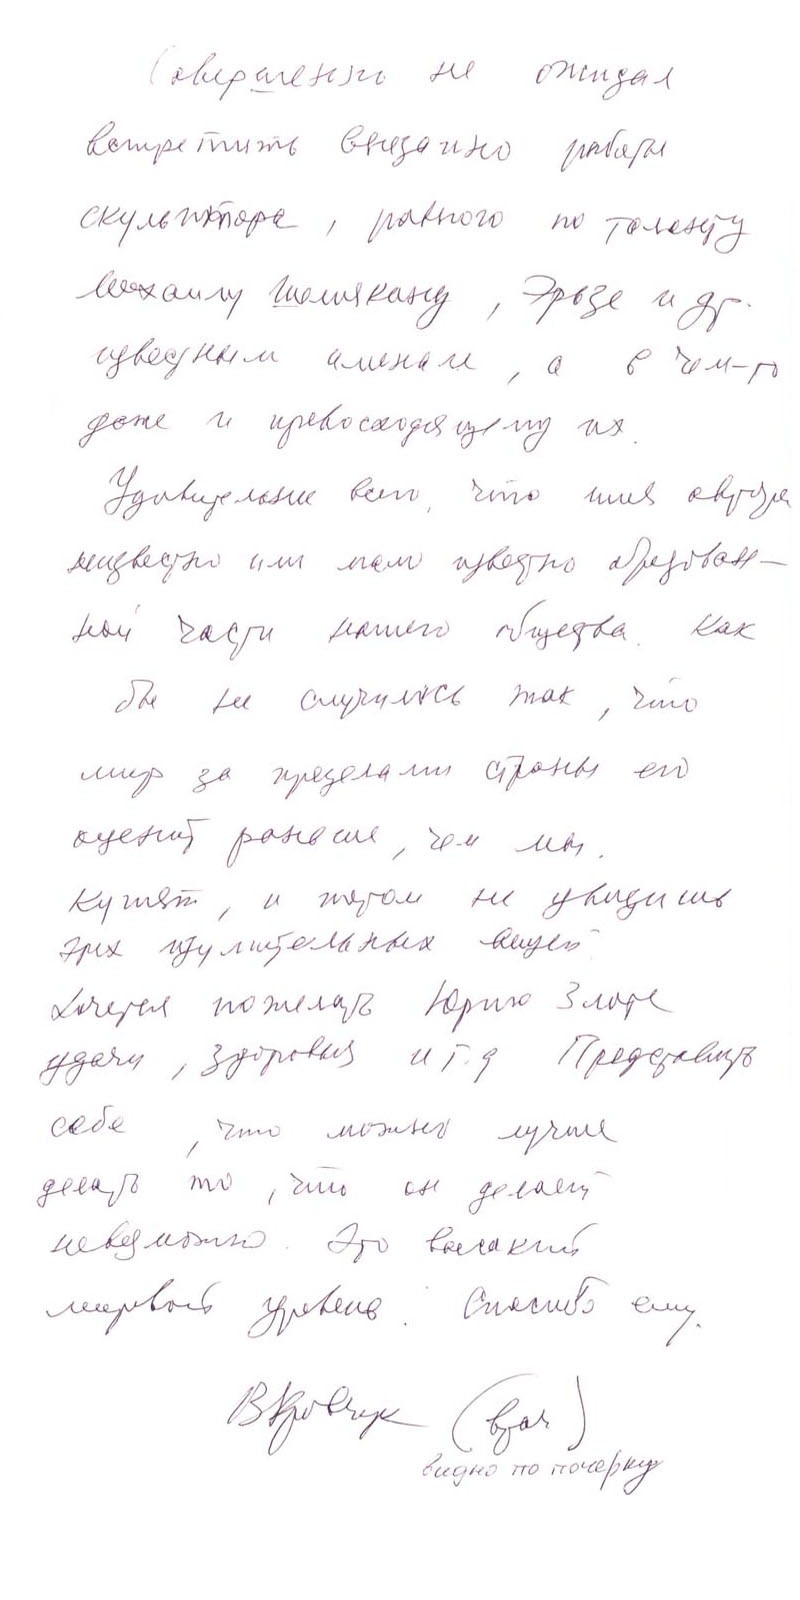 Совершенно не ожидал
встретить внезапно работы
скульптора, равного по таланту
Михаилу Шемякину, Эрьзе и др.
известным именам, а в чем-то
даже и превосходящему их.
Удивительнее всего, что имя автора
неизвестно или мало известно образован-
ной части нашего общества. Как
бы не случилось так, что
мир за пределами страны его
оценит раньше, чем мы.
Купят, и потом не увидишь
этих изумительных вещей.
Хочется пожелать Юрию Злоте
удачи, здоровья и т.д Представить
себе, что можно лучше
делать то, что он делает
невозможно. Это высокий
мировой уровень. Спасибо ему.
В Кравчук (врач)
видно по почерку